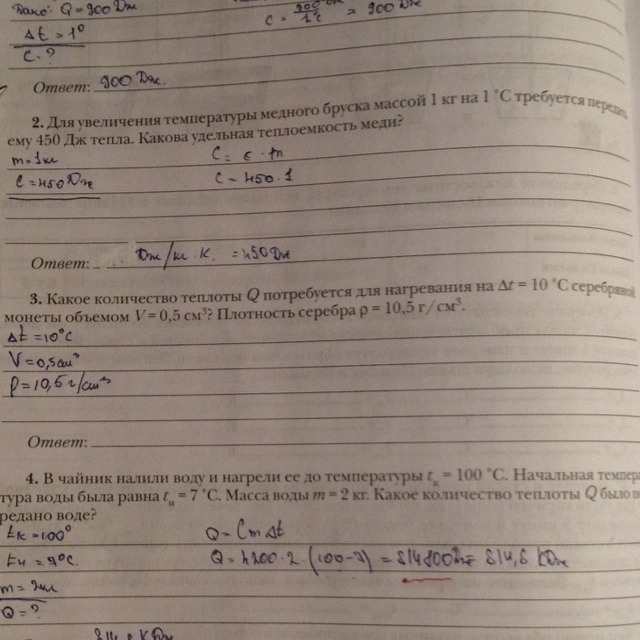 Дано: Q=900 Дж
C = 900 Дж/1°C = 900 Дж
Δt = 1°
C - ?
Ответ: 900 Дж.
2. Для увеличения температуры медного бруска массой 1 кг на 1 °C требуется передать
ему 450 Дж тепла. Какова удельная теплоемкость меди?
m=1кг C = c · m
C = 450 Дж C = 450·1
Ответ: Дж/кг · К. = 450 Дж
3. Какое количество теплоты Q потребуется для нагревания на Δt = 10 °C серебряной
монеты объемом V = 0,5 см³? Плотность серебра ρ = 10,5 г/см³.
Δt = 10°C
V = 0,5см³
ρ = 10,5 г/см³
Ответ:
4. В чайник налили воду и нагрели ее до температуры tк = 100 °C. Начальная темпера
тура воды была равна tн = 7 °C. Масса воды m = 2 кг. Какое количество теплоты Q было пе
редано воде?
tк = 100° Q = C m Δt
tн = 7°C. Q = 4200·2·(100-3) = 814800 Дж = 814,8 КДж
m = 2кг
Q = ?
814,8 КДж